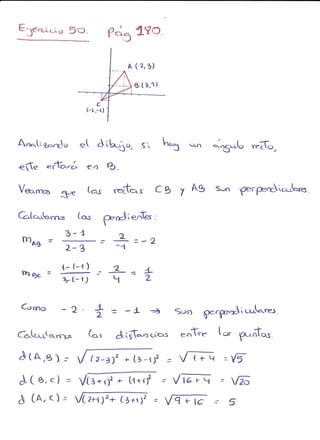 Ejercicio 50. Pág 180.
A (2,3)
B (3,1)
C
(-1,-1)
Analizando el dibujo, si hay un ángulo recto,
este estará en B.
Veamos que las rectas CB y AB son perpendiculares.
Calculamos las pendientes:
m_AB = (3-1)/(2-3) = 2/-1 = -2
m_BC = (1-(-1))/(3-(-1)) = 2/4 = 1/2
Como -2 · 1/2 = -1 → son perpendiculares.
Calculamos las distancias entre los puntos.
d(A,B) = √((2-3)² + (3-1)²) = √(1+4) = √5
d(B,C) = √((3+1)² + (1+1)²) = √(16+4) = √20
d(A,C) = √((2+1)² + (3+1)²) = √(9+16) = 5